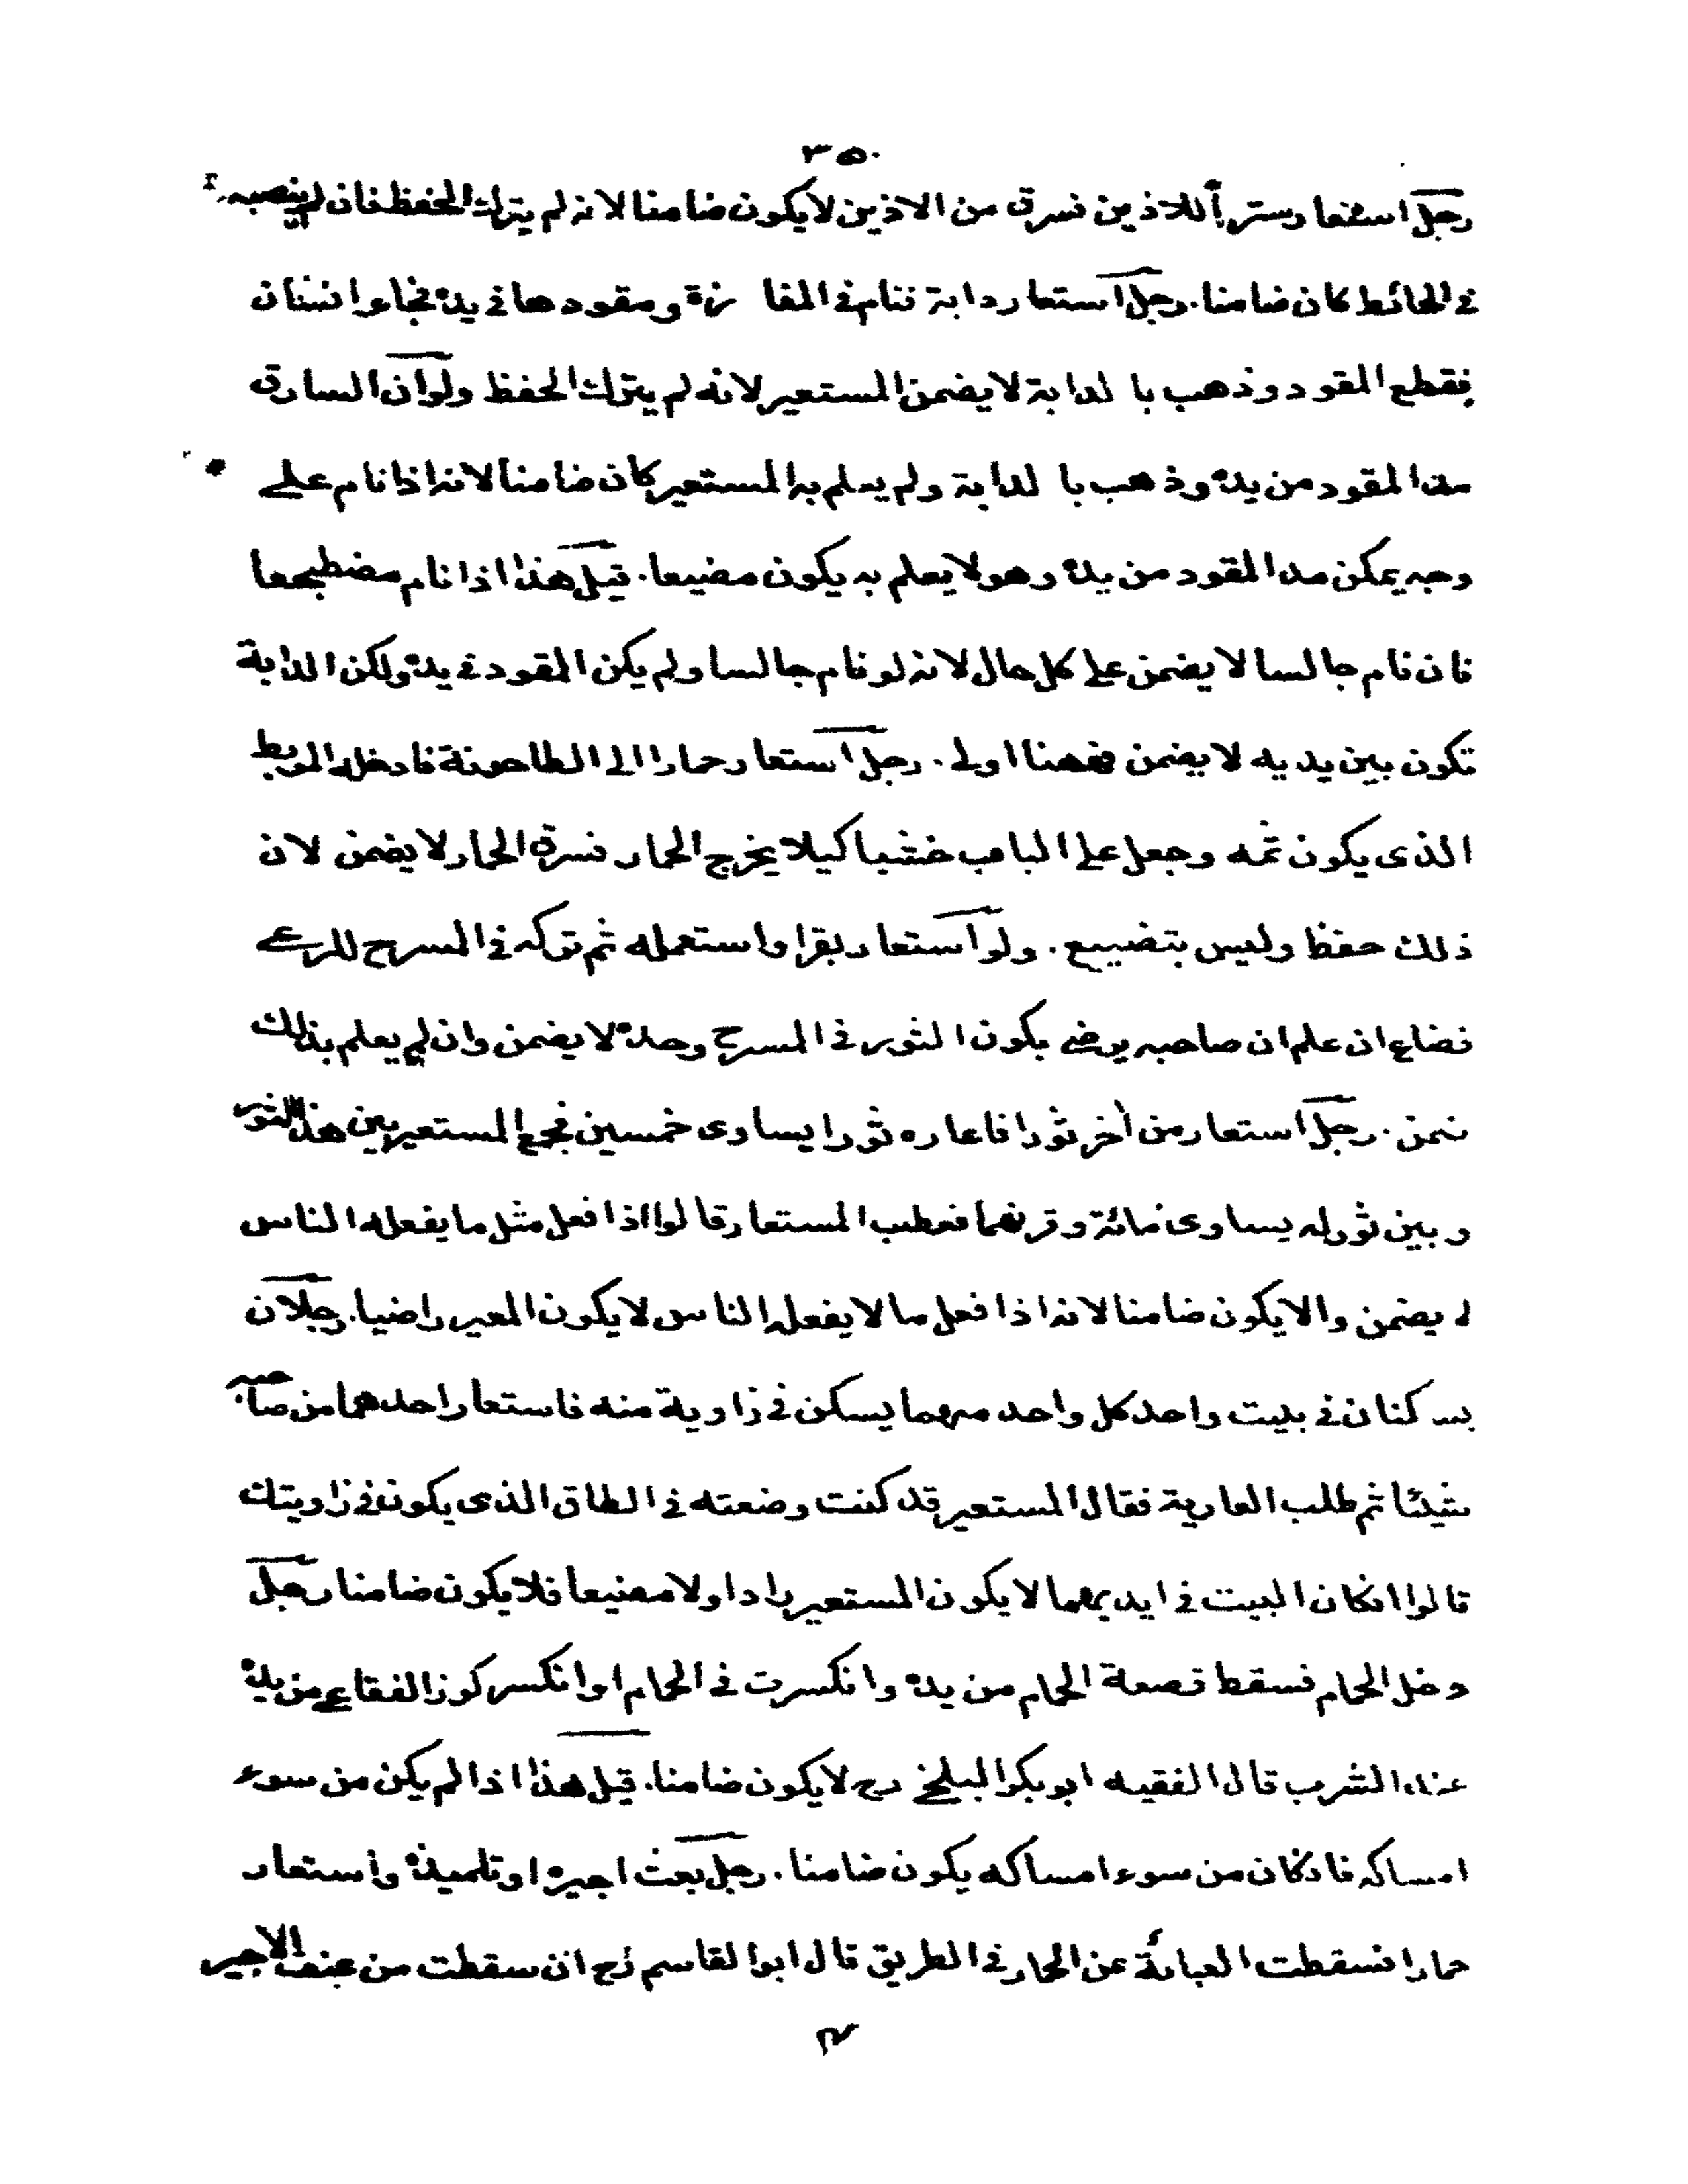 ٣٥٠
رجل استعار سترا للاذين فسرق من الاذين لا يكون ضامنا لانه لم يترك الحفظ فان لم ينصبه
في الحائط كان ضامنا. رجل استعار دابة فنام في المفا زة ومقودها في يده فجاء انسان
فقطع المقود وذهب با لدابة لا يضمن المستعير لانه لم يترك الحفظ ولو ان السارق
مد المقود من يده وذهب با لدابة ولم يعلم به المستعير كان ضامنا لانه اذا نام على
وجه يمكن مد المقود من يده وهو لا يعلم به يكون مضيعا. قيل هذا اذا نام مضطجعا
فان نام جالسا لا يضمن على كل حال لانه لو نام جالسا ولم يكن المقود في يده ولكن الدابة
تكون بين يديه لا يضمن فههنا اولى. رجل استعار حمارا الى الطاحونة فادخله المربط
الذى يكون ثمه وجعل على الباب خشبا كيلا يخرج الحمار فسرق الحمار لا يضمن لان
ذلك حفظ وليس بتضييع. ولو استعار بقرا واستعمله ثم تركه في المسرح للرعي
فضاع ان علم ان صاحبه يرضى بكون الثور في المسرح وحده لا يضمن وان لم يعلم بذلك
ضمن. رجل استعار من آخر ثورا فاعاره ثورا يساوى خمسين فجمع المستعير بين هذا الثور
وبين ثور له يساوى مائة وقرنهما فعطب المستعار قالوا اذا فعل مثل ما يفعله الناس
لا يضمن والا يكون ضامنا لانه اذا فعل ما لا يفعله الناس لا يكون المعير راضيا. رجلان
يسكنان في بيت واحد كل واحد منهما يسكن في زاوية منه فاستعار احدهما من صاحبه
شيئا ثم طلب العارية فقال المستعير قد كنت وضعته في الطاق الذى يكون في زاويتك
قالوا انكان البيت في ايديهما لا يكون المستعير رادا ولا مضيعا فلا يكون ضامنا رجل
دخل الحمام فسقط قصعة الحمام من يده وانكسرت في الحمام او انكسر كوز الفقاع من يده
عند الشرب قال الفقيه ابو بكر البلخي رح لا يكون ضامنا. قيل هذا اذا لم يكن من سوء
امساكه فاذكان من سوء امساكه يكون ضامنا. رجل بعث اجيره او تلميذه واستعار
حمارا فسقطت العباءة عن الحمار في الطريق قال ابو القاسم رح ان سقطت من عنف الاجير